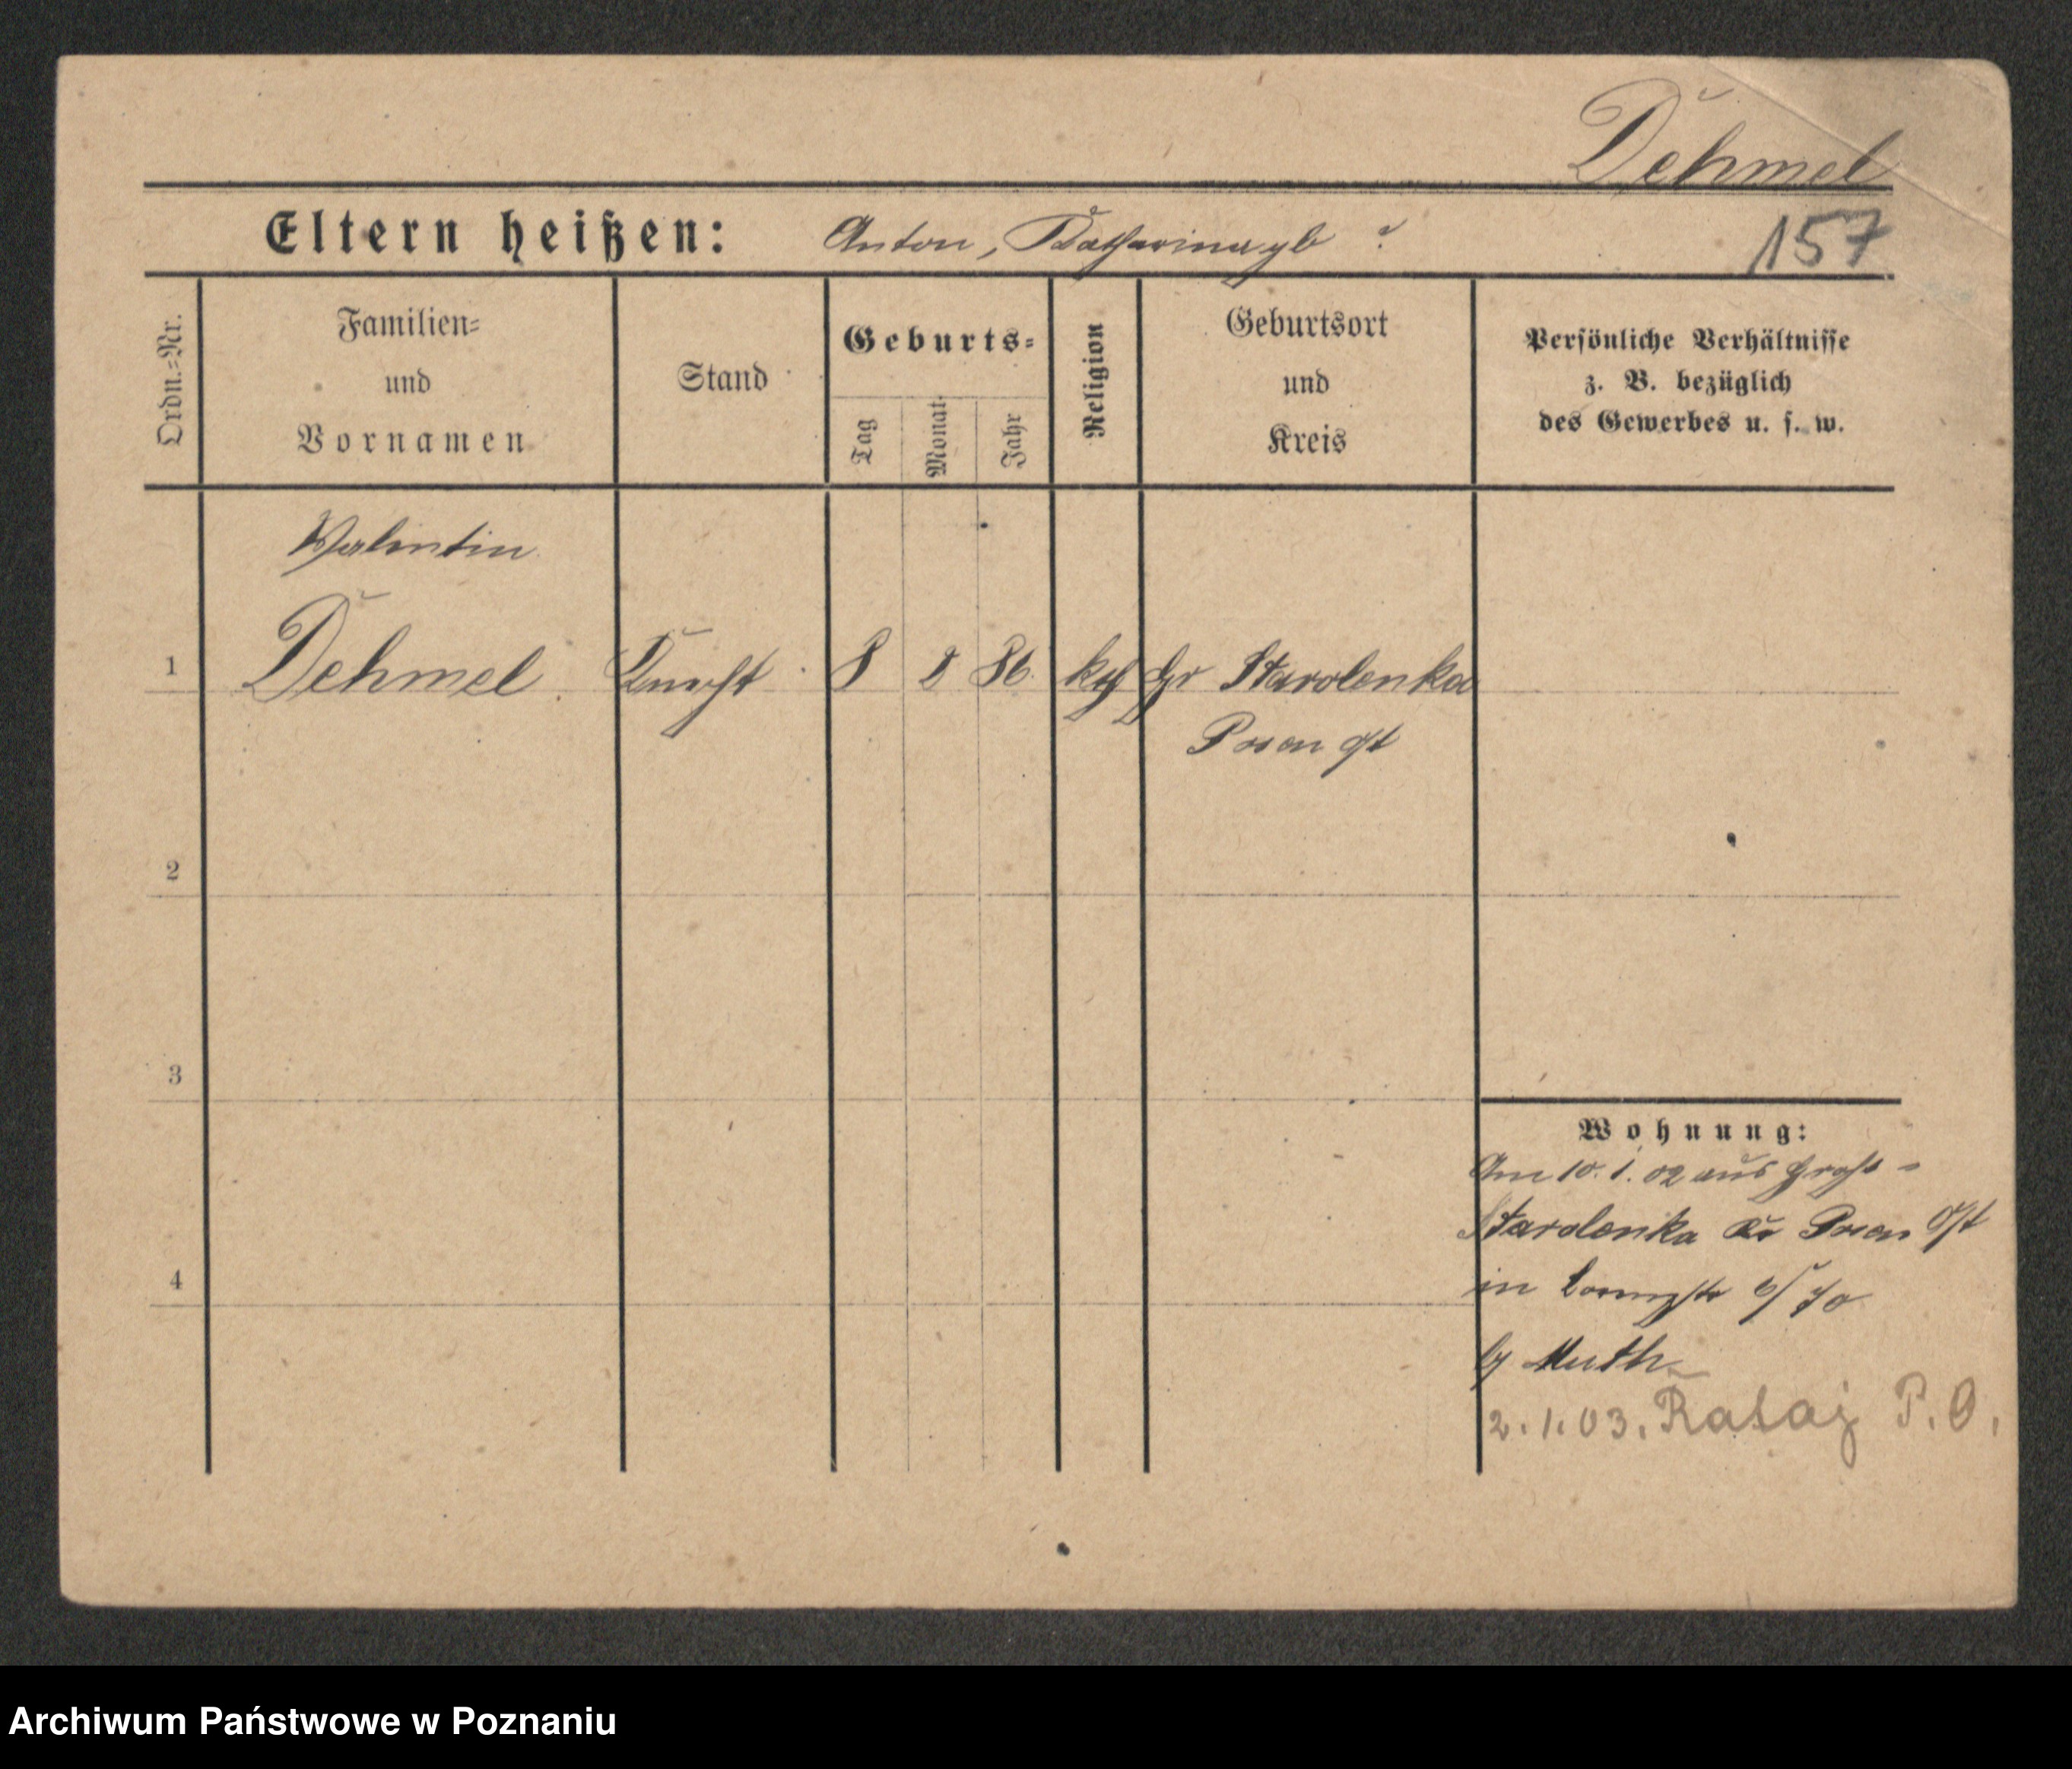 Dehmel
Eltern heißen: Anton, Katharina gb ?
157
Ordn.=Nr.
Familien=
und
Vornamen
Stand
Geburts=
Tag
Monat
Jahr
Religion
Geburtsort
und
Kreis
Persönliche Verhältnisse
z. B. bezüglich
des Gewerbes u. s. w.
Valentin
1 Dehmel Knecht 8 2 86 kth Gr Starolenka
Posen Ost
2
3
4
Wohnung:
Am 10.1.02 aus Groß-
Starolenka Kr Posen Ost
in 6/70
by Muth
2.1.03. Rataj P.O.
Archiwum Państwowe w Poznaniu